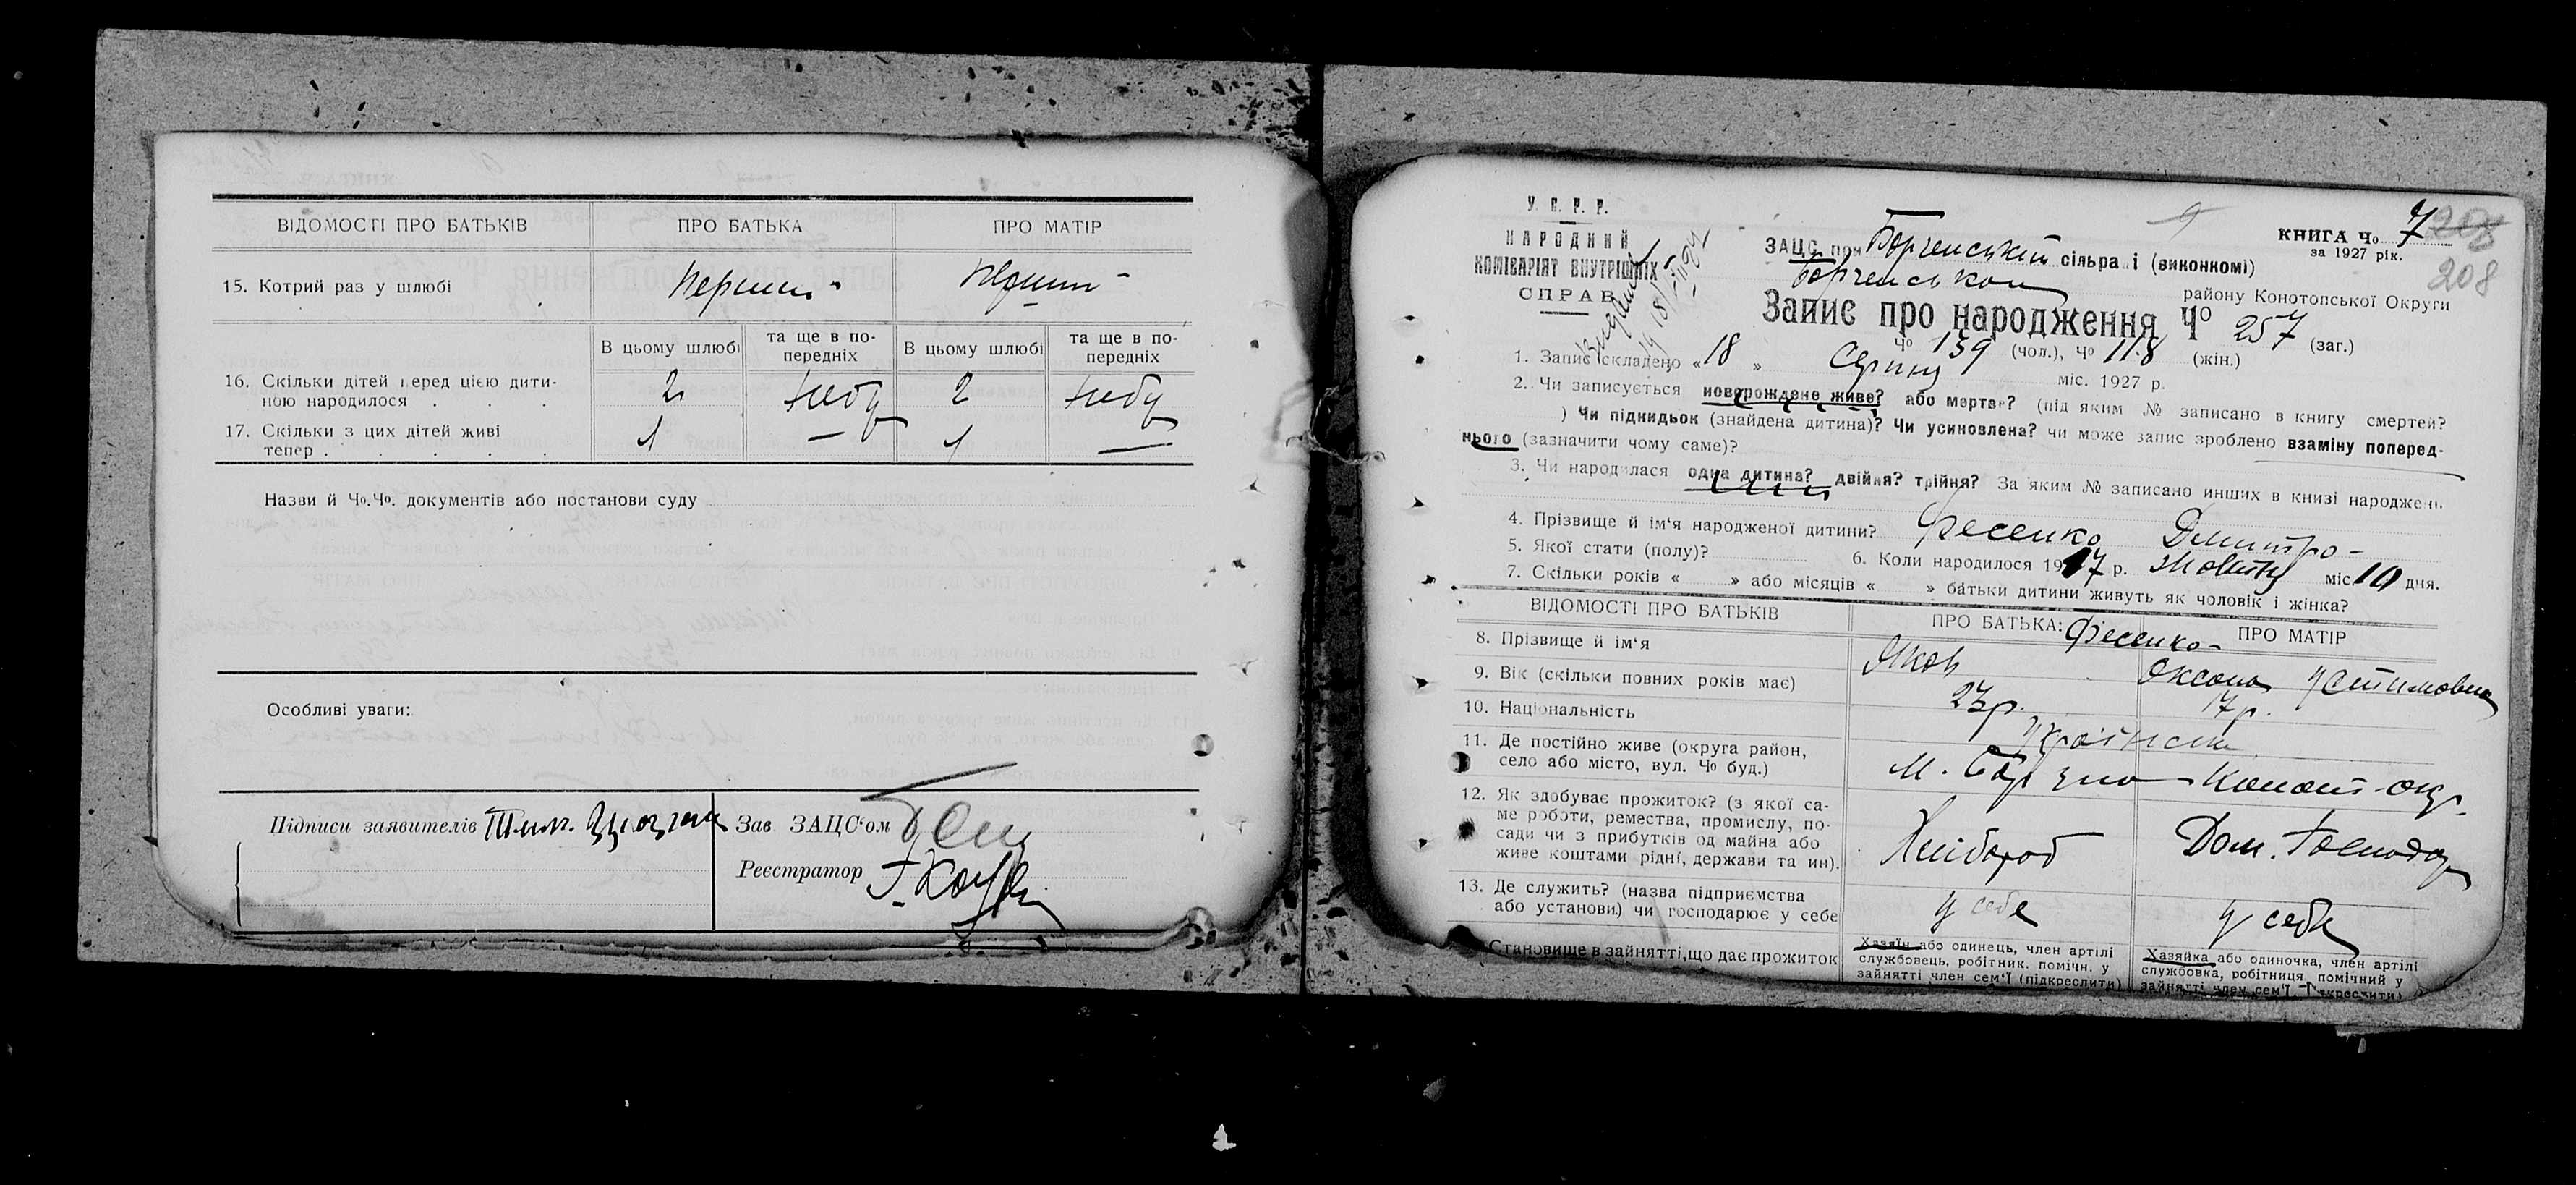 ВІДОМОСТІ ПРО БАТЬКІВ ПРО БАТЬКА ПРО МАТІР
15. Котрий раз у шлюбі Перший Перший
В цьому шлюбі та ще в по-передніх В цьому шлюбі та ще в по-передніх
16. Скільки дітей перед цією дити-
ною народилося . . . 2 небу 2 небу
17. Скільки з цих дітей живі
тепер . . . . . 1 — 1 —
Назви й Чо.Чо. документів або постанови суду
Особливі уваги:
Підписи заявителів Зав ЗАЦС'ом
Реєстратор
У. С. Р. Р.
НАРОДНИЙ
КОМІСАРІЯТ ВНУТРІШНІХ
СПРАВ
КНИГА Чо 7
за 1927 рік.
208
ЗАЦС при сільраді (виконкомі)
району Конотопської Округи
Запис про народження Чо 257 (заг.)
Чо 139 (чол.), Чо 118 (жін.)
1. Запис складено « 18 » Серпня міс. 1927 р.
2. Чи записується новорождене живе? або мертве? (під яким № записано в книгу смертей?
) Чи підкидьок (знайдена дитина)? Чи усиновлена? чи може запис зроблено взаміну поперед-
нього (зазначити чому саме)?
3. Чи народилася одна дитина? двійня? трійня? За яким № записано инших в книзі народжень
4. Прізвище й ім'я народженої дитини? Фесенко Дмитро
5. Якої стати (полу)? 6. Коли народилося 1917 р. Жовтня міс 10 дня.
7. Скільки років « » або місяців « » батьки дитини живуть як чоловік і жінка?
ВІДОМОСТІ ПРО БАТЬКІВ ПРО БАТЬКА: Фесенко ПРО МАТІР
8. Прізвище й ім'я Яков Оксана Устимовна
9. Вік (скільки повних років має) 23 р. 17 р.
10. Національність
11. Де постійно живе (округа район,
село або місто, вул. Чо буд.) М. Борзна Конот. окр.
12. Як здобуває прожиток? (з якої са-
ме роботи, ремества, промислу, по-
сади чи з прибутків од майна або
живе коштами рідні, держави та ин). Хлібороб Дом. Господар
13. Де служить? (назва підприємства
або установи) чи господарює у себе у себе у себе
Становище в зайнятті, що дає прожиток
Хазяїн або одинець, член артілі
службовець, робітник, помічн. у
зайнятті член сем'ї (підкреслити)
Хазяйка або одиночка, член артілі
службовка, робітниця помічний у
зайнятті член сем'ї